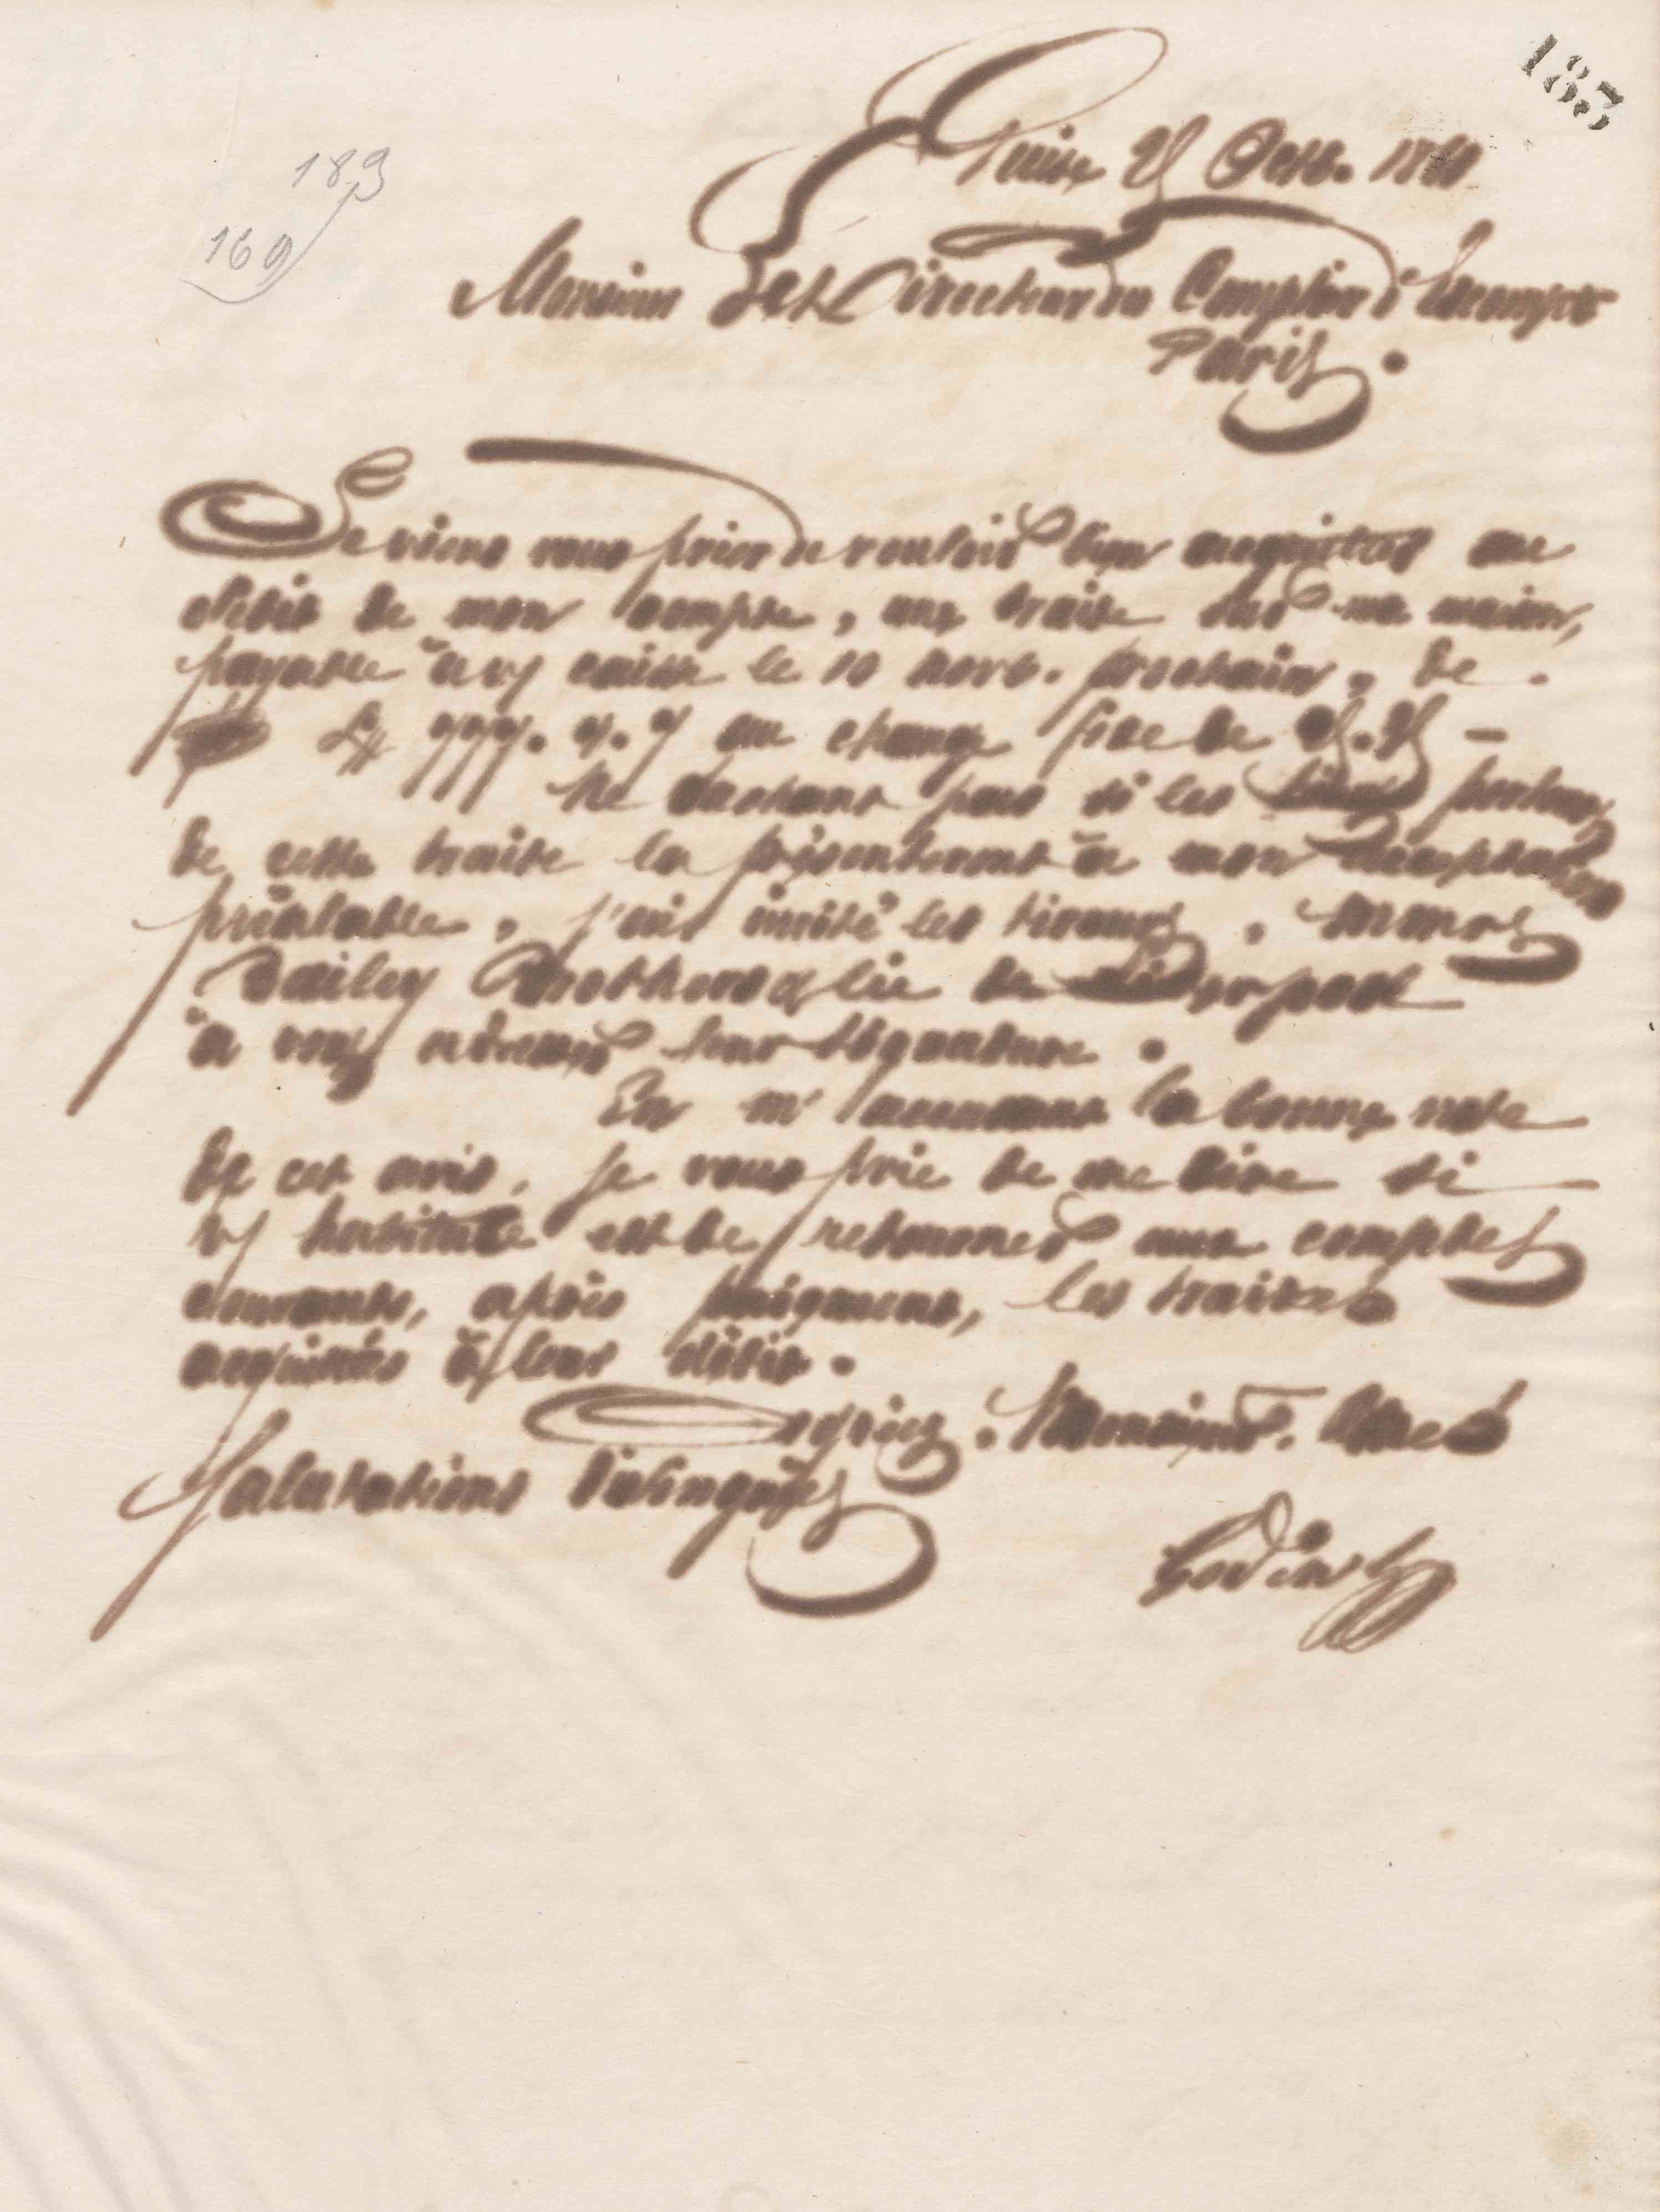 183
189
169
Guise 25 Octb. 18
Monsieur Le Directeur du Comptoir d'Escompte
Paris.
Je viens vous prier de vouloir bien acquitter au
débit de mon compte, une traite sur ma maison,
payable à v/ caisse le 10 novb. prochain, de
L au change fixe de 25.25 –
Ne sachant pas si les porteurs
de cette traite la présenteront à mon acceptation
préalable, j'ai invité les tireurs, MM
Dailey Brothers & Cie de Liverpool
à vous adresser leur signature.
En m'accusant la bonne note
de cet avis, je vous prie de me dire si
v/ habitude est de retourner aux comptes
courants, après paiement, les traites
acquittées à leur débit.
Agréez, Monsieur, mes
salutations distinguées
Godin